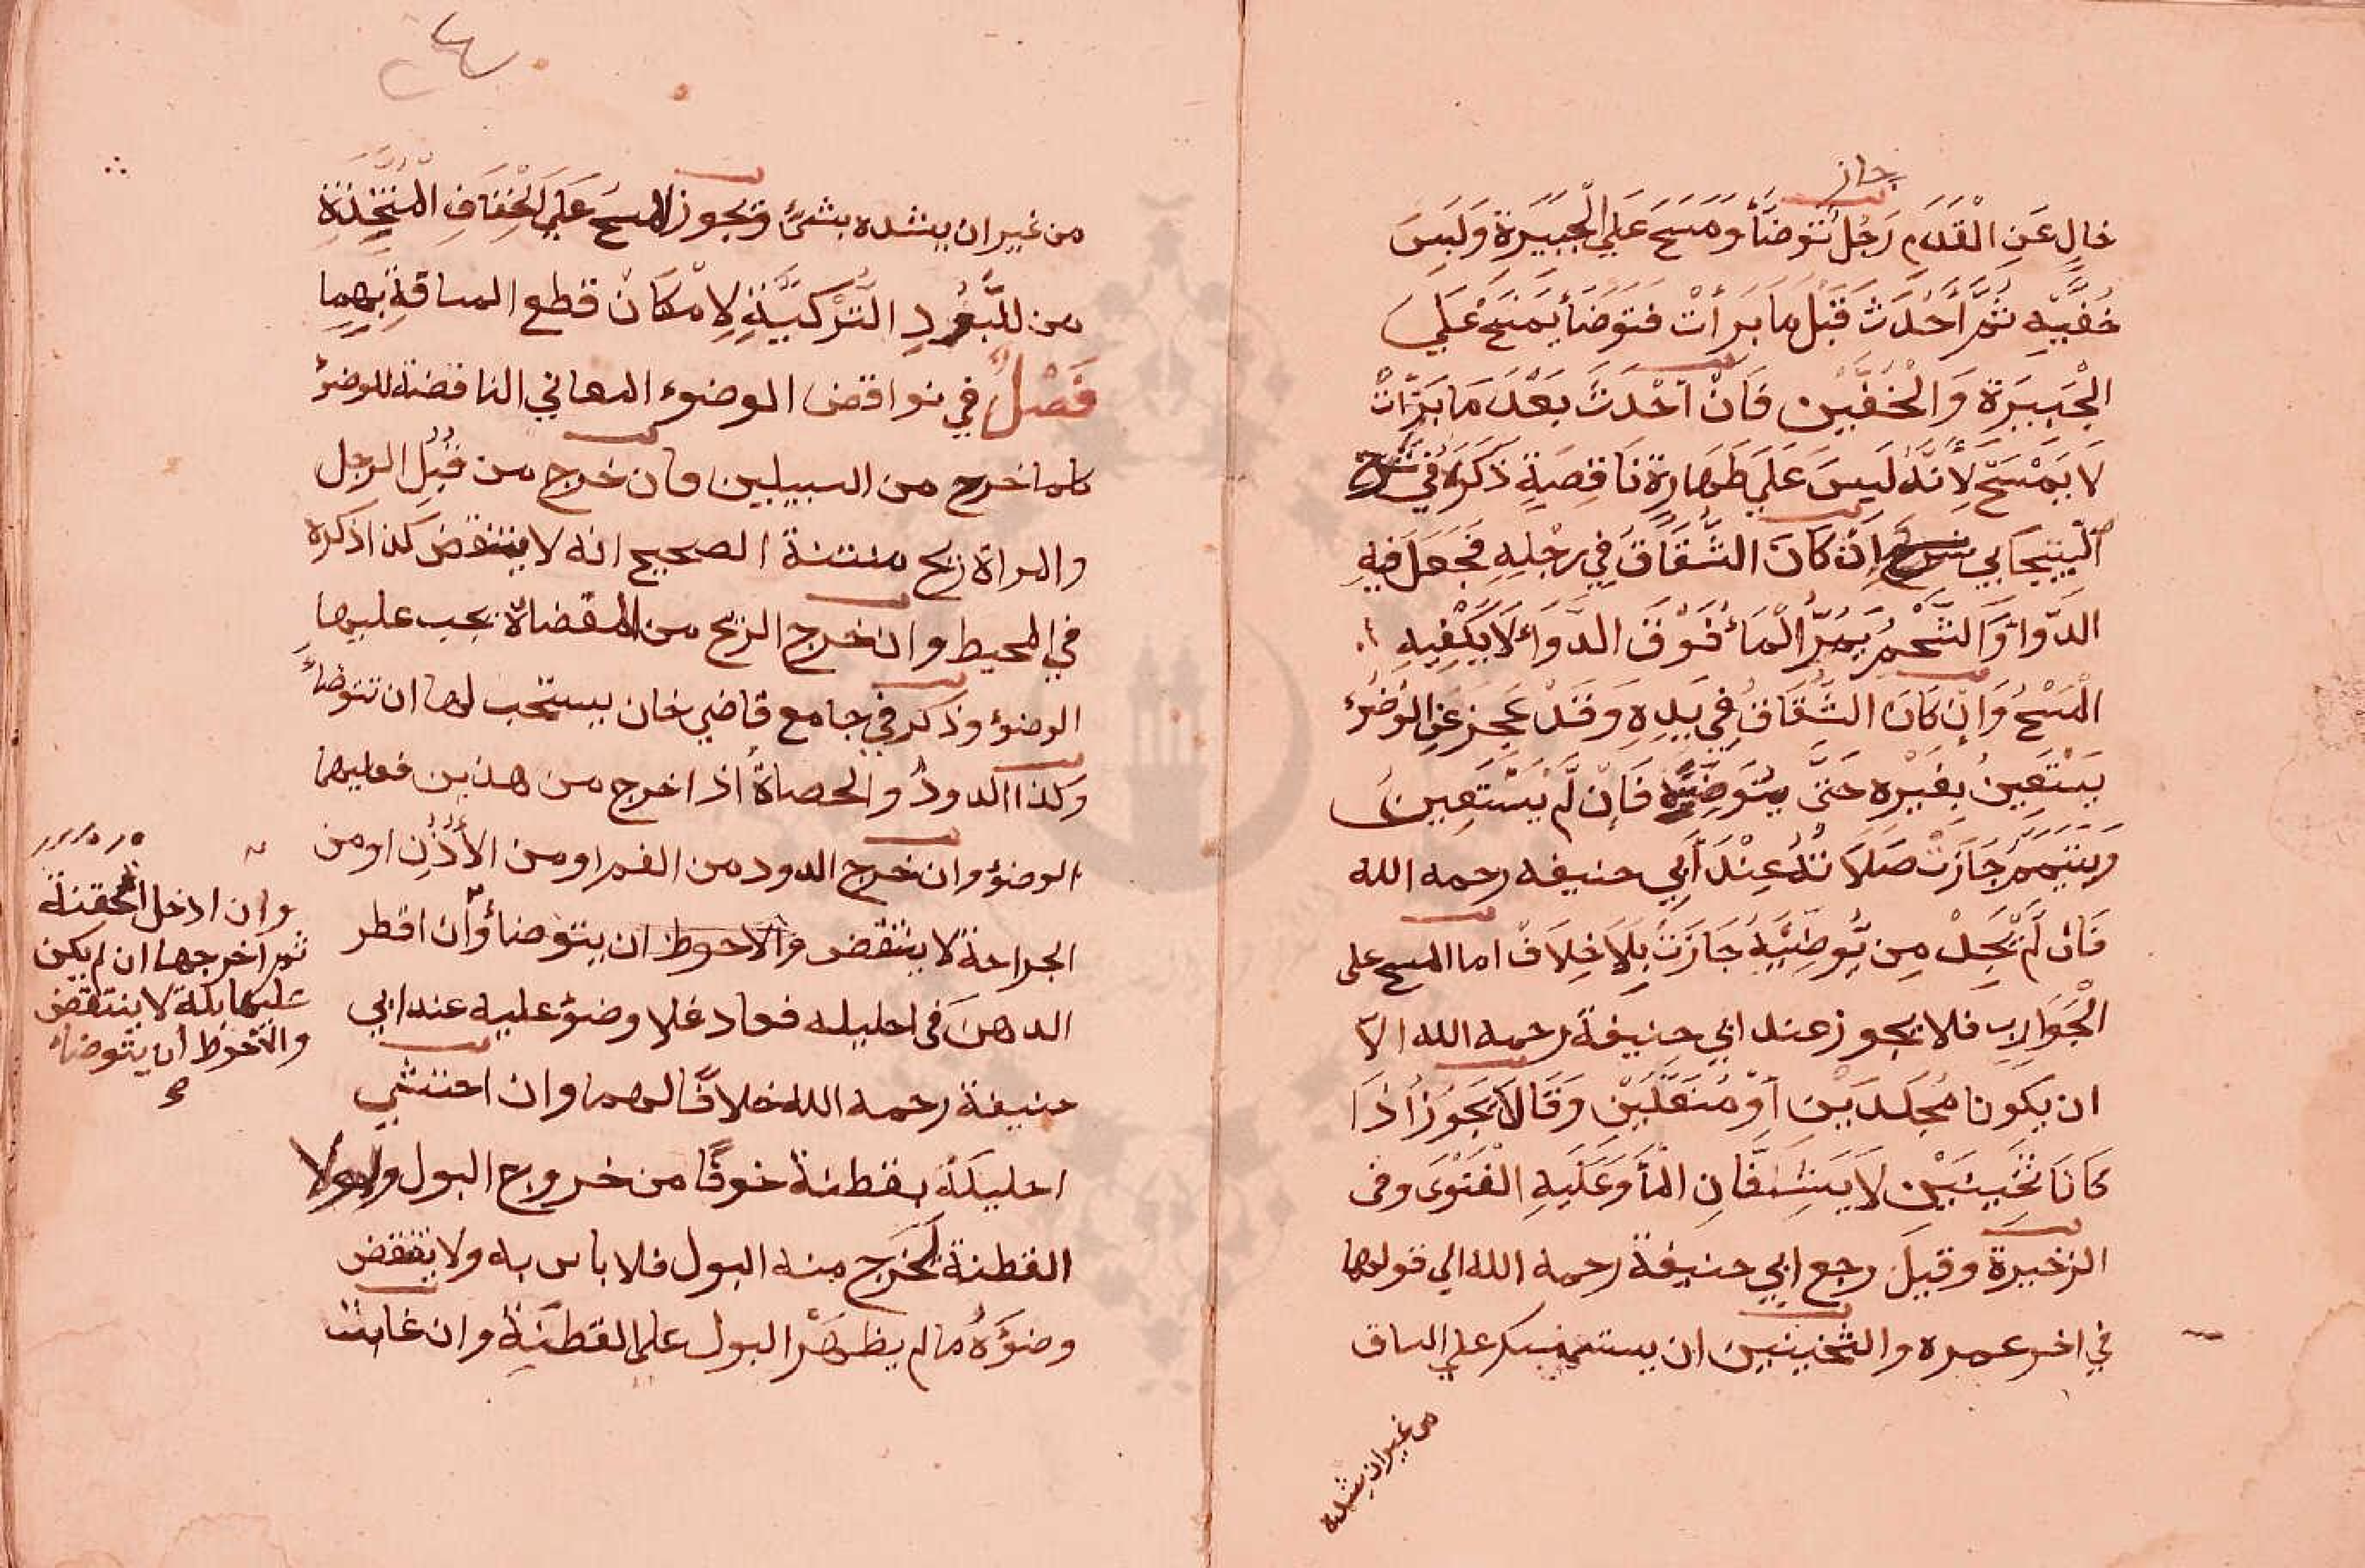 جاز
خالٍ عَنِ الْقَدَمِ رَجُلٌ تَوَضَّأَ وَمَسَحَ عَلَي الْجَبِيَرَةِ وَلَبِسَ
خُفَّيْهِ ثُمَّ أَحْدَثَ قَبْلَ مَا بَرَأَتْ فَتَوَضَأَ يَمْسَحُ عَلَي
الْجَبِيرَةِ وَالْخُفَّيْنِ فَانْ اَحْدَثَ بَعْدَ مَا بَرَأتْ
لَا يَمْسَحُ لِأَنَّهُ لَيسَ عَلَي طَهَارةٍ نَاقِصَةٍ ذَكَرَهُ فِي شرح
إِنْ كَانَ الشُّقَاقُ فِي رِجْلِهِ فَجَعَلَ فيهِ
الدَّوَاءَ وَالشَّحْمَ يَمُرُّ الْمَاءُ فَوْقَ الدَّوَاءِ لَا يَكْفِيهِ
الْمَسْحُ وَإِنْ كَانَ الشُّقَاقُ فِي يَدِهِ وَقَدْ عَجِزَ عَنِ الْوُضُوءِ
يَسْتَعِينُ بِغَيْرِهِ حَتَّى يُوَضِّئَهُ فَإِنْ لَّمْ يَسْتَعِينْ
وَيَتَيَمَّمَ جَازَتْ صَلَاتُهُ عِنْدَ أَبِي حنيفه رحمه الله
فَانْ لَمْ يَجِدْ مِن يُوضِيهِ جَازَتْ بِلَا خِلَافْ اما المسح على
الْجَوَارِبِ فلا يجوز عند ابي حنِيفة رحمه الله الّا
ان يكونا مُجَلَّدَيْنِ أَوْ مُنَعَّلَيْنِ وَقَالَا يَجُوزُ اذَا
كَانَا ثَخِينَيْنِ لَا يَنْشَفَّانِ الْمَاءَ وَعَلَيهِ الْفَتْوَى وفى
الزخيرة وقيلَ رجع ابي حنيفة رحمه الله الي قولهما
في اخر عمره والثخينين ان يستمسك علي الساق
من غير ان يشده
من غير ان يشده بشئ وَيجوز المسحُ عَلَي الْخِفَافِ الْمُتَّخِذَةِ
من اللُّبُودِ التُّرْكِيَّةِ لِامْكَانِ قطع المسافَةِ بِهِمَا
فَصْلٌ في نواقض الوضوء المعاني الناقضة للوضوء
كلما خرج من السبيلين فان خرج من قُبُلِ الرجل
والمراة ريح منتنة الصحيح انه لا ينتقض كذا ذكره
في المحيط وان خرج الريح من المفضاة يجب عليها
الوضوء وذكر في جامع قاضي خان يستحب لها ان تتوضأ
وَكذا الدودُ والحصاةُ اذا خرج من هذين فعليهما
الوضوء وان خرج الدود من الفم او من الأُذُنِ او من
الجراحة لا ينتقض والاحوط ان يتوضأ وان اقطر
الدهنَ فى احليله فعاد فلا وضوء عليه عند ابي
حنيفة رحمه الله خلافًا لهما وان احتشي
احليله بقطنة خوفًا من خروج البول ولولا
القطنة لَخَرَجَ منه البول فلا باس به ولا ينقض
وضوءَهُ ما لم يظهَرْ البول على القطنَةِ وان غابت
وان ادخل الحقنة
ثم اخرجها ان لم يكن
عليها بلة لا ينتقض
والاحوط أن يتوضأ